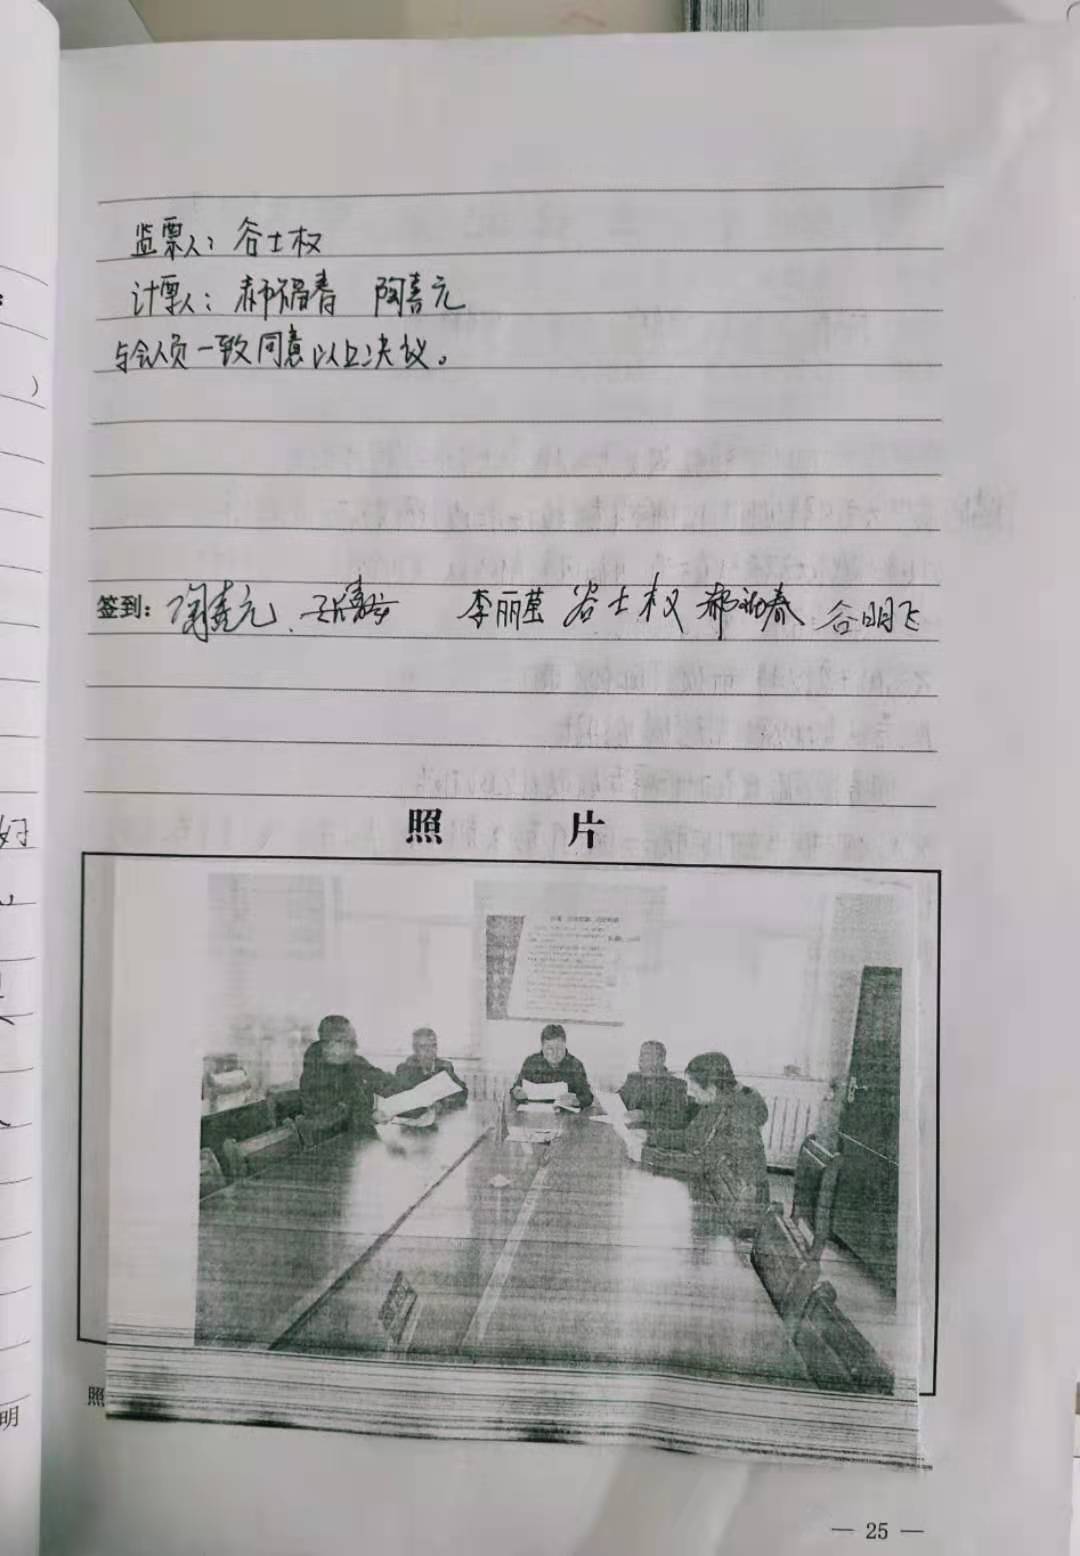 监票人：谷士权
计票人：郝福春 陶喜元
与会人员一致同意以上决议。
签到：陶喜元 李丽莹 谷士权 郝福春 谷明飞
照 片
照
— 25 —
好
明